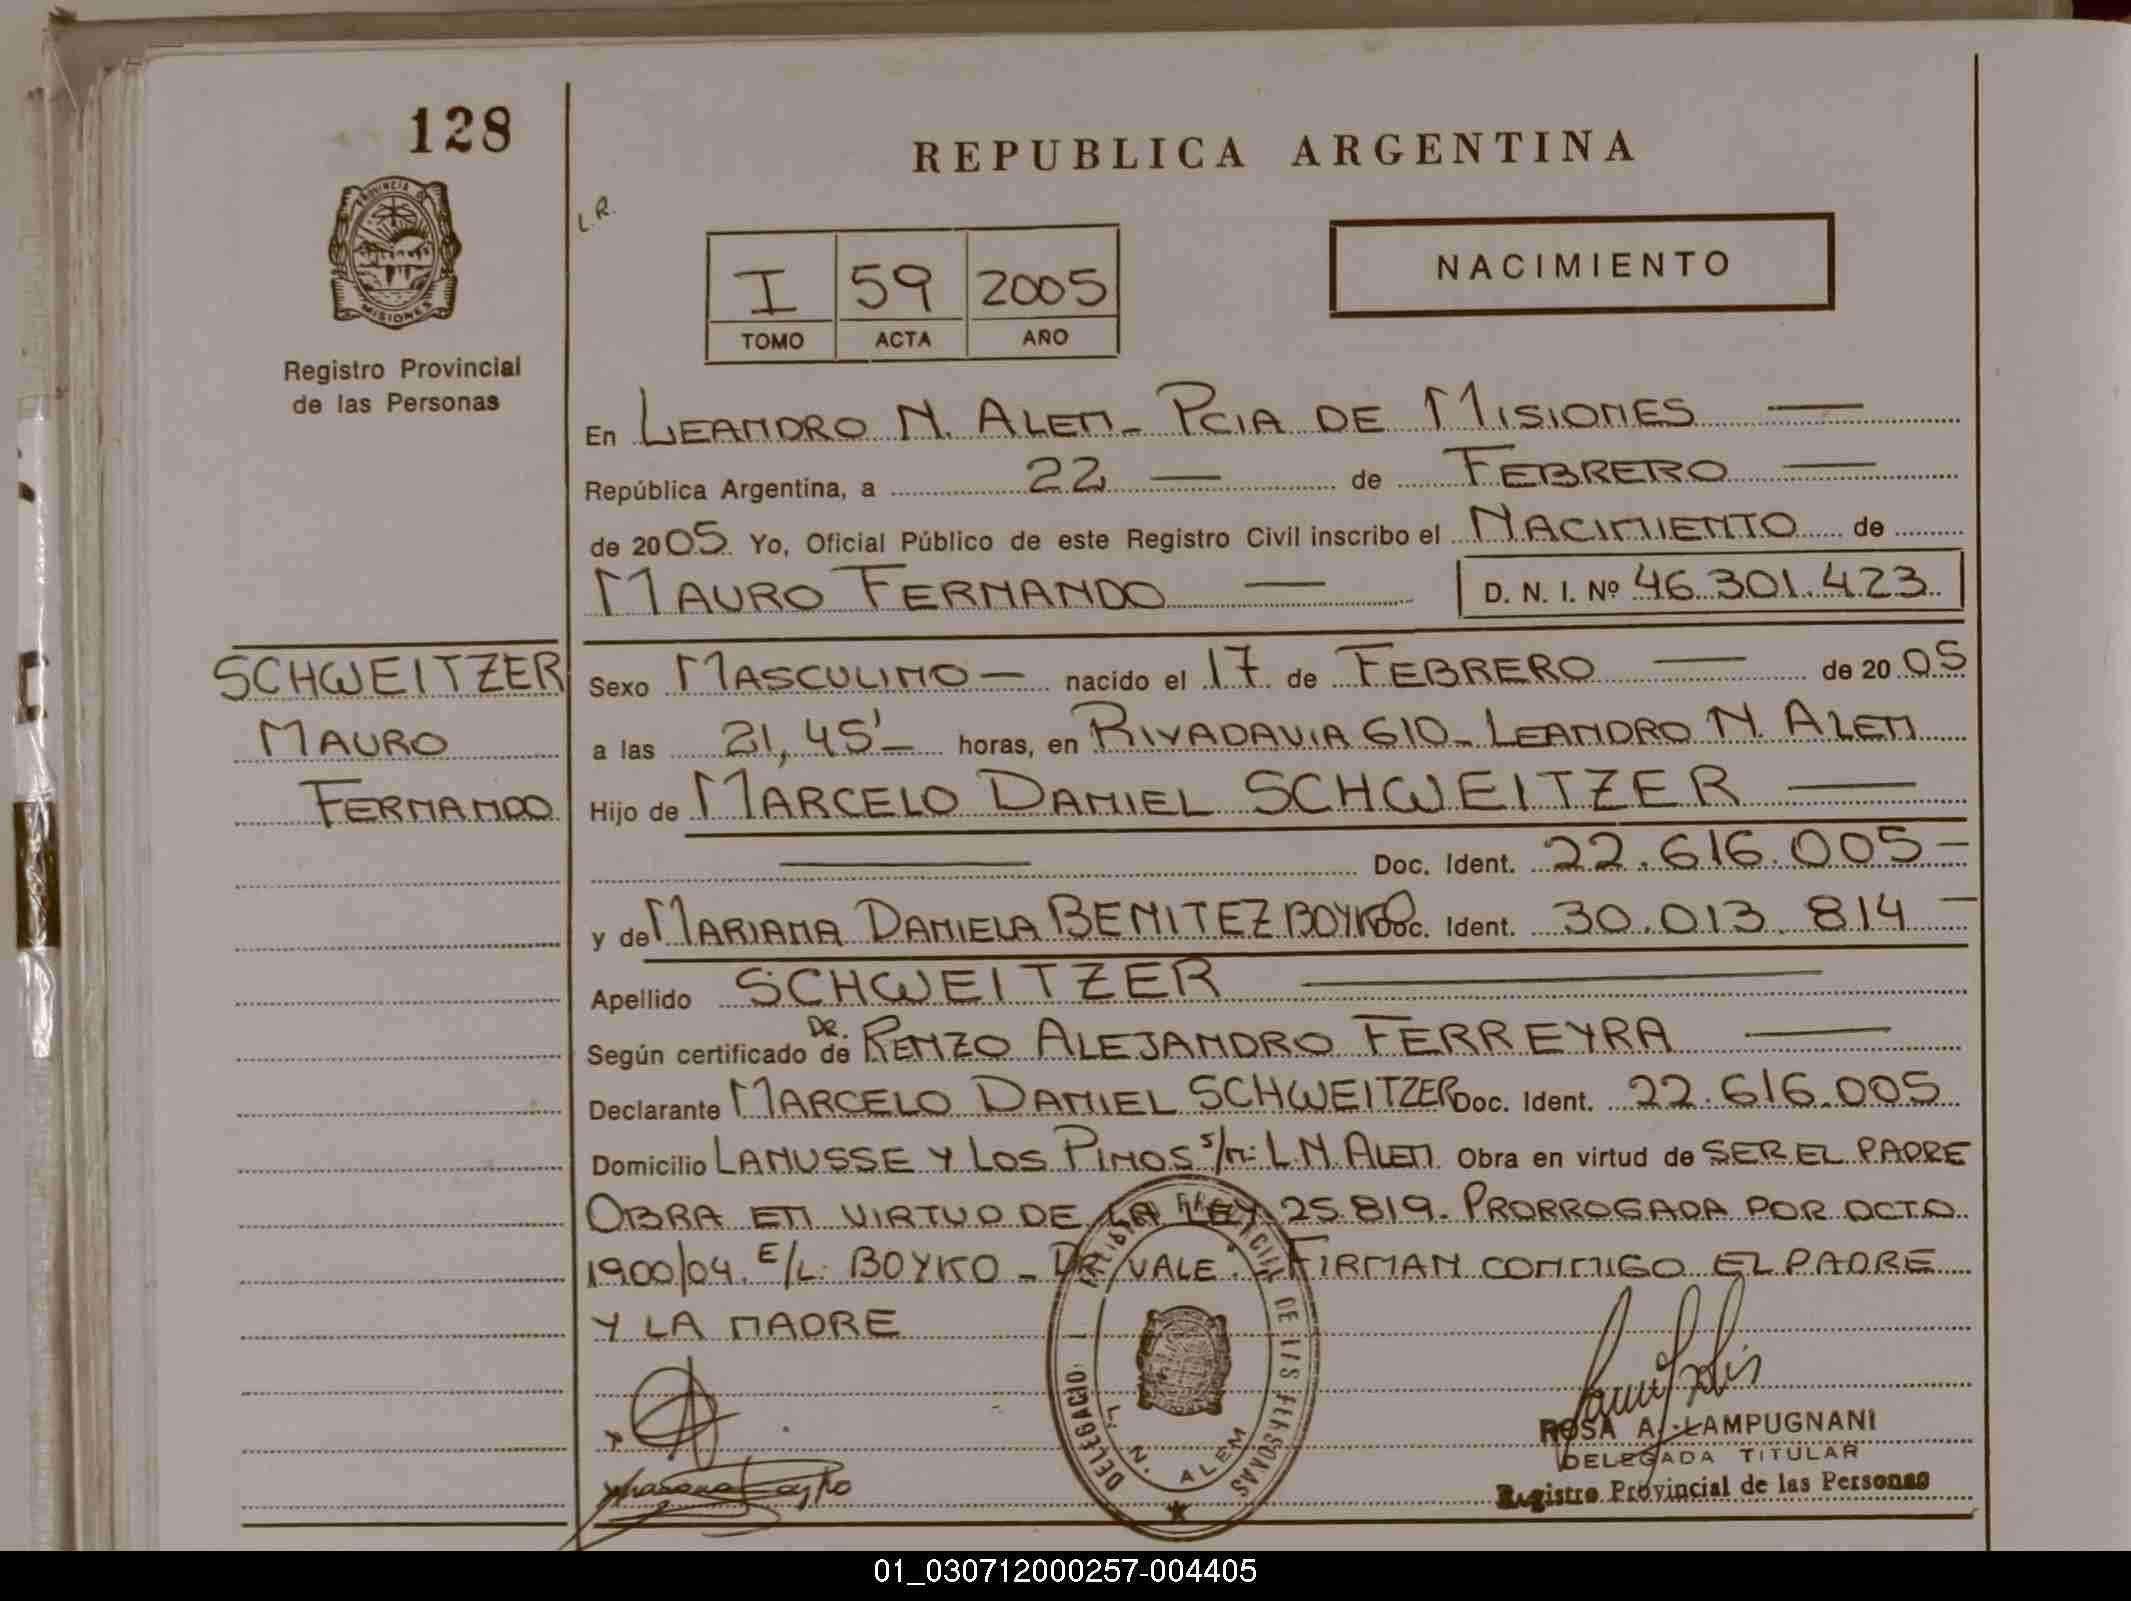 128
REPUBLICA ARGENTINA
L.R.
PROVINCIA DE
MISIONES
NACIMIENTO
I 59 2005
TOMO ACTA AÑO
Registro Provincial
de las Personas
En LEANDRO N. ALEM - PCIA DE MISIONES
República Argentina, a 22 de FEBRERO
de 2005 Yo, Oficial Público de este Registro Civil inscribo el NACIMIENTO de
MAURO FERNANDO D. N. I. Nº 46.301.423
SCHWEITZER
MAURO
FERNANDO
Sexo MASCULINO nacido el 17 de FEBRERO de 2005
a las 21,45' horas, en RIVADAVIA 610 - LEANDRO N. ALEM
Hijo de MARCELO DANIEL SCHWEITZER
Doc. Ident. 22.616.005
y de MARIANA DANIELA BENITEZ BOYKO Doc. Ident. 30.013.814
Apellido SCHWEITZER
Según certificado de DR. RENZO ALEJANDRO FERREYRA
Declarante MARCELO DANIEL SCHWEITZER Doc. Ident. 22.616.005
Domicilio LANUSSE Y LOS PINOS s/n: L.N. ALEM. Obra en virtud de SER EL PADRE
OBRA EN VIRTUD DE LA LEY 25.819. PRORROGADA POR DCTO
1900/04. E/L: BOYKO - DR. VALE. FIRMAN CONMIGO EL PADRE
Y LA MADRE
DE LAS PERSONAS
DELEGACIO
L. N. ALEM
ROSA A. LAMPUGNANI
DELEGADA TITULAR
Registro Provincial de las Personas
01_030712000257-004405